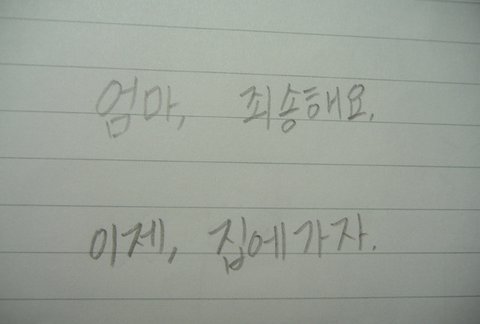 엄마, 죄송해요.
이제, 집에가자.